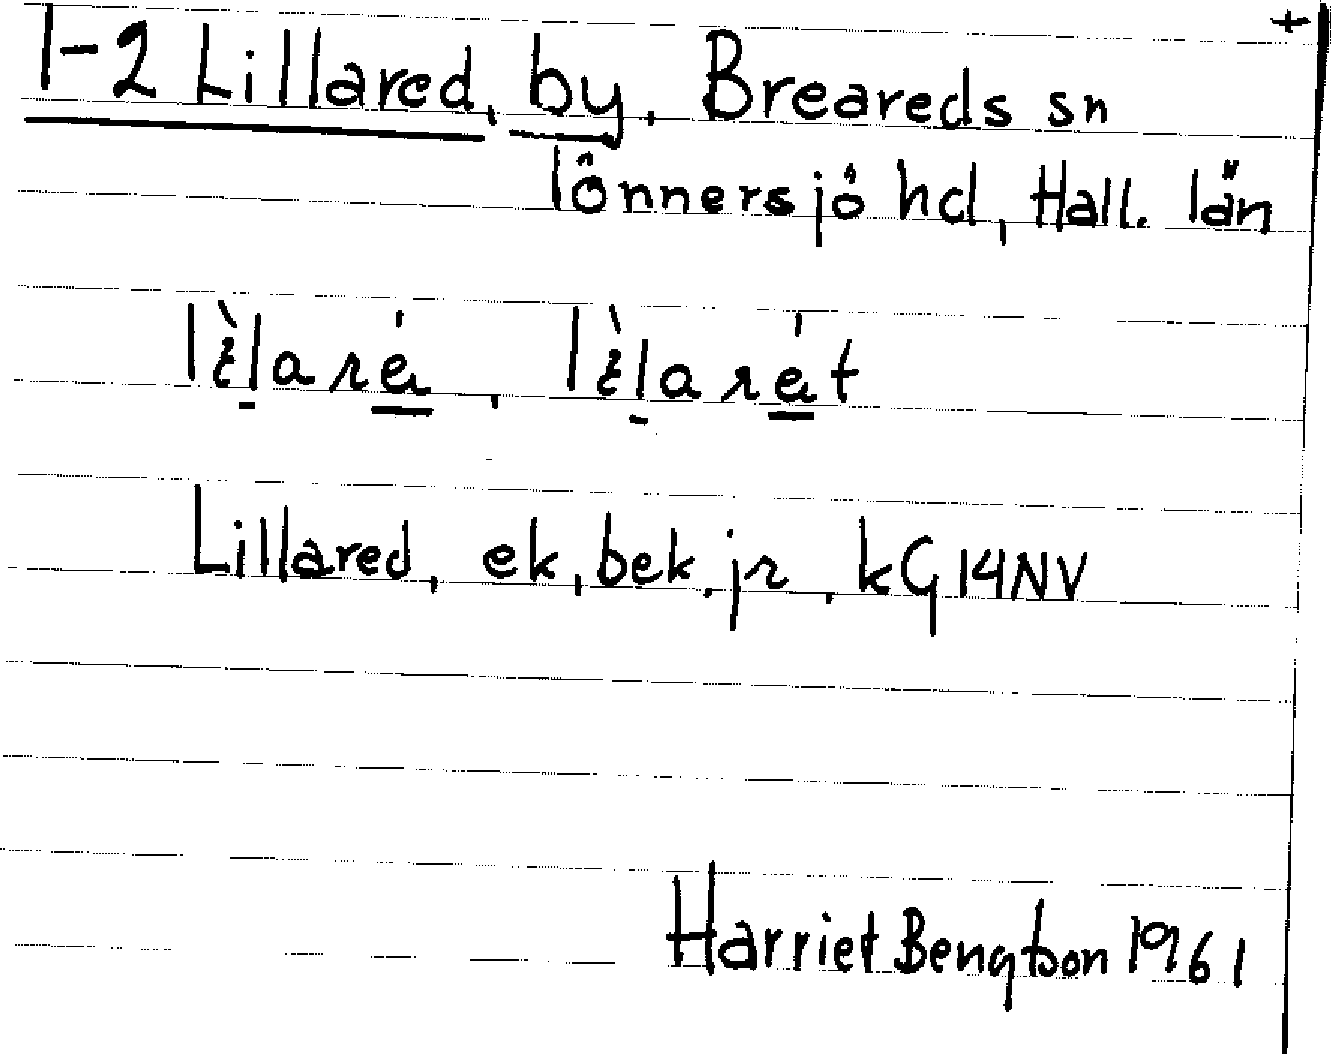 +
1-2 Lillared, by, Breareds sn
Tönnersjö hd, Hall. län
Lillared, ek, bek. jr, kG 14NV
Harriet Bengtson 1961